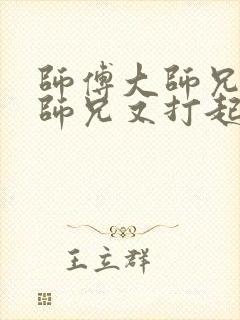 師傅大師兄
師兄又打起
王立群